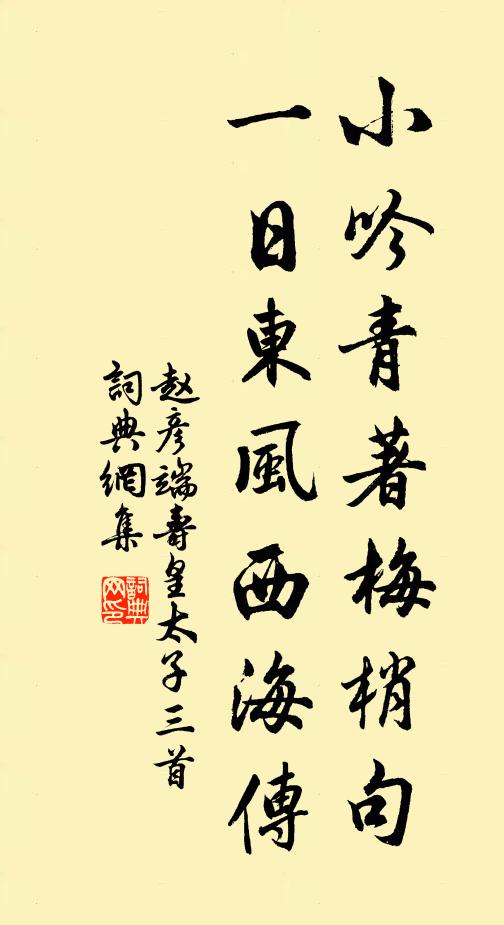 小吟青著梅梢句
一日東風西海傳
赵彥端壽皇太子三首
詞典網集
詞典网印